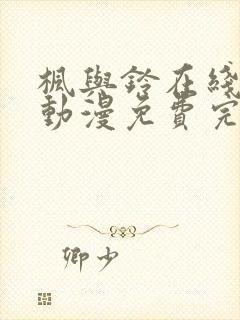 楓與鈴在綫
動漫免費完
卿少